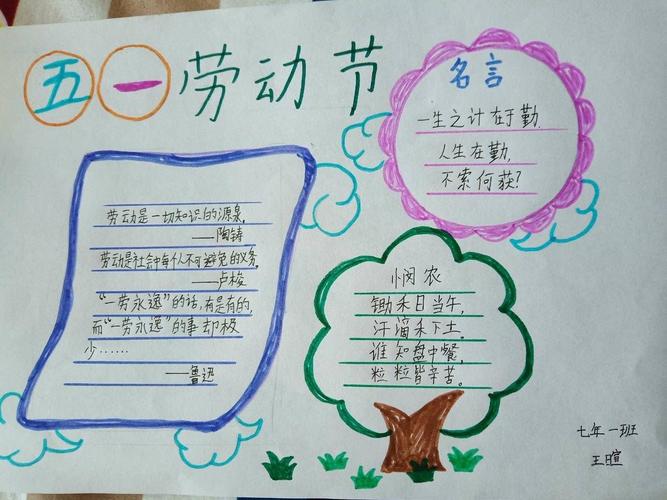 五一劳动节
名言
一生之计在于勤.
人生在勤,
不索何获?
劳动是一切知识的源泉,
——陶铸
劳动是社会中每个人不可避免的义务。
——卢梭
“一劳永逸”的话,有是有的,
而“一劳永逸”的事却极
少……
——鲁迅
悯农
锄禾日当午,
汗滴禾下土。
谁知盘中餐,
粒粒皆辛苦。
七年一班
王暄